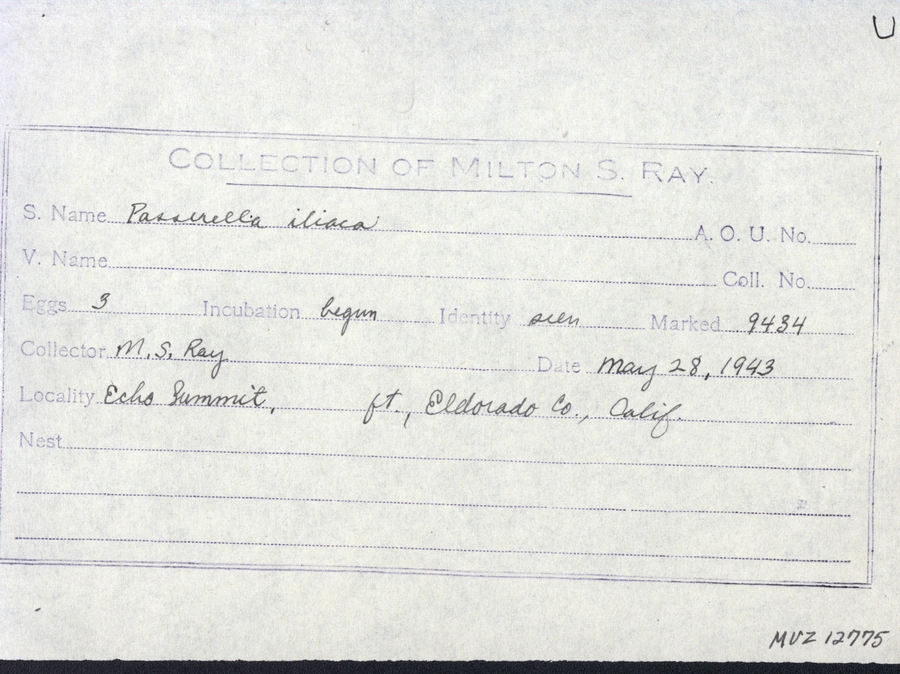 U
COLLECTION OF MILTON S. RAY.
S. Name Passerella iliaca A. O. U. No.
V. Name Coll. No.
Eggs 3 Incubation begun Identity seen Marked 9434
Collector M. S. Ray Date May 28, 1943
Locality Echo Summit, ft., Eldorado Co., Calif.
Nest
MVZ 12775